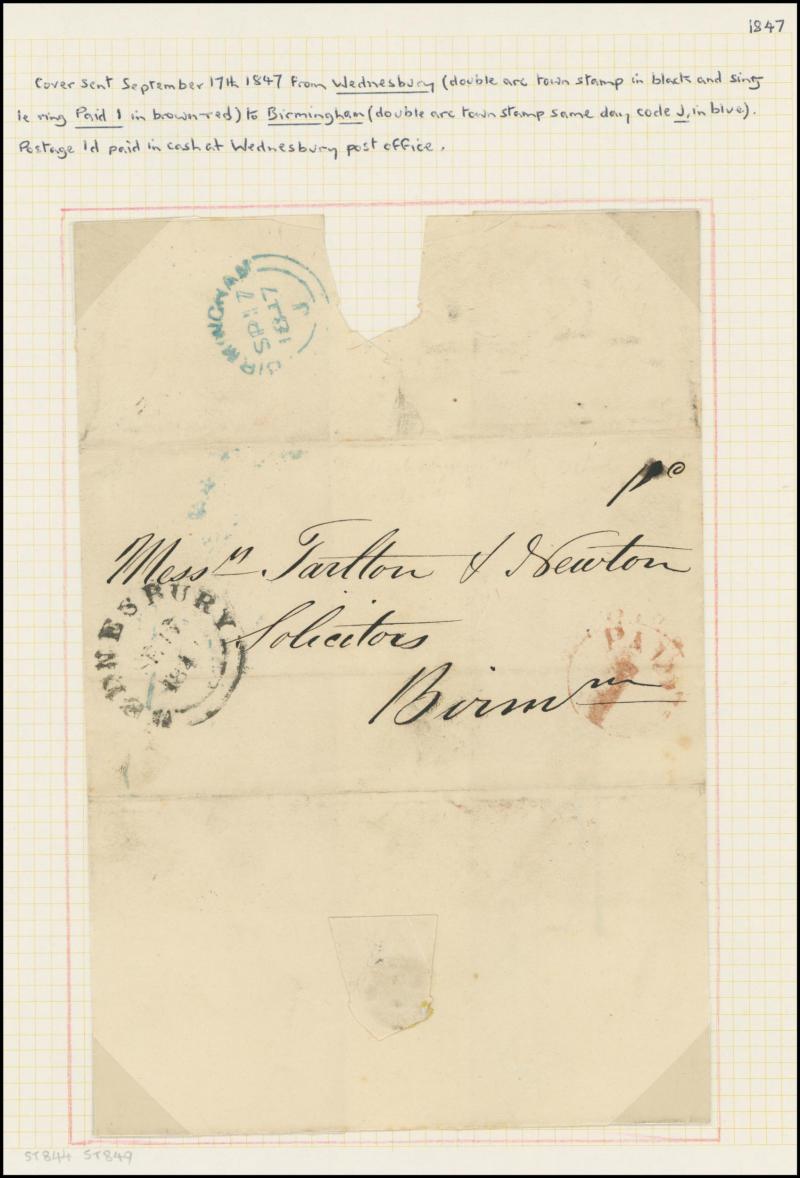 1847
Cover sent September 17th 1847 from Wednesbury (double arc town stamp in black and sing
le ring Paid 1 in brown-red) to Birmingham (double arc town stamp same day code J, in blue).
Postage 1d paid in cash at Wednesbury post office.
BIRMINGHAM
SP 17
1847
J
Messrs. Tarlton & Newton
WEDNESBURY
Solicitors
PAID
1
Birmm
ST844 ST849